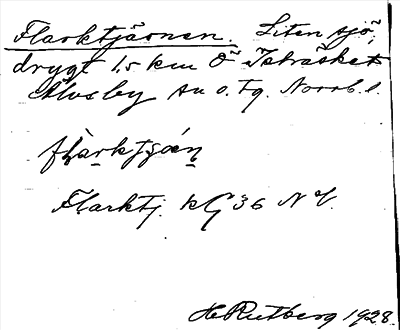 Flarktjärnen. Liten sjö,
drygt 1,5 km Ö Isträsket
Älvsby sn o. tg. Norrb. l.
flarktjän
Flarktj. kG 36 NV.
H. Rutberg 1928.